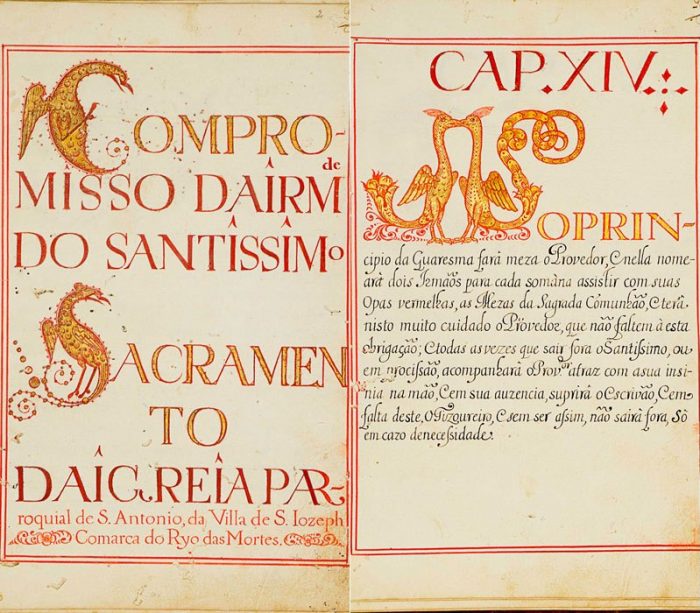 COMPRO-
MISSO DA IRM.de
DO SANTISSIMO
SACRAMEN
TO
DA IGREIA PAR-
roquial de S. Antonio, da Villa de S. Iozeph
Comarca do Ryo das Mortes.
CAP. XIV.
NOPRIN-
cipio da Quaresma fará meza o Provedor, E nella nome-
ará dois Irmãos para cada somana assistir com suas
Opas vermelhas, as Mezas da Sagrada Comunhão, E terá
nisto muito cuidado o Provedor, que não faltem à esta
obrigação; E todas as vezes que sair fora o Santissimo, ou
em procissão, acompanhará o Prov.or atraz com a sua insi-
nia na mão, E em sua auzencia, suprirá o Escrivão, E em
falta deste, O Tizoureiro, E sem ser assim, não sairá fora, Só
em cazo de necessidade.